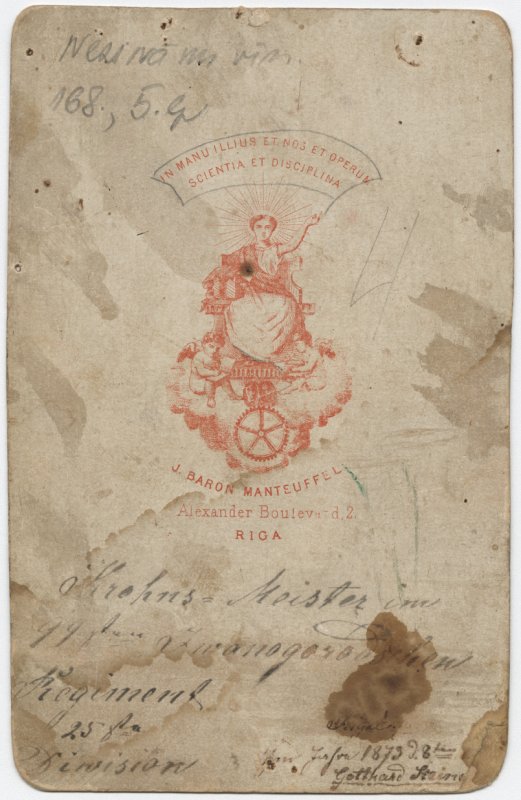 Nezināms vīrs.
168., 5. g
IN MANU ILLIUS ET NOS ET OPERUM
SCIENTIA ET DISCIPLINA
J. BARON MANTEUFFEL
Alexander Boulevard, 2.
RIGA
Krohns-Meister im
99sten Iwanogorodschen
Regiment
25ste
Division
im Jahre 1873 d. 8ten
Gotthard Stein